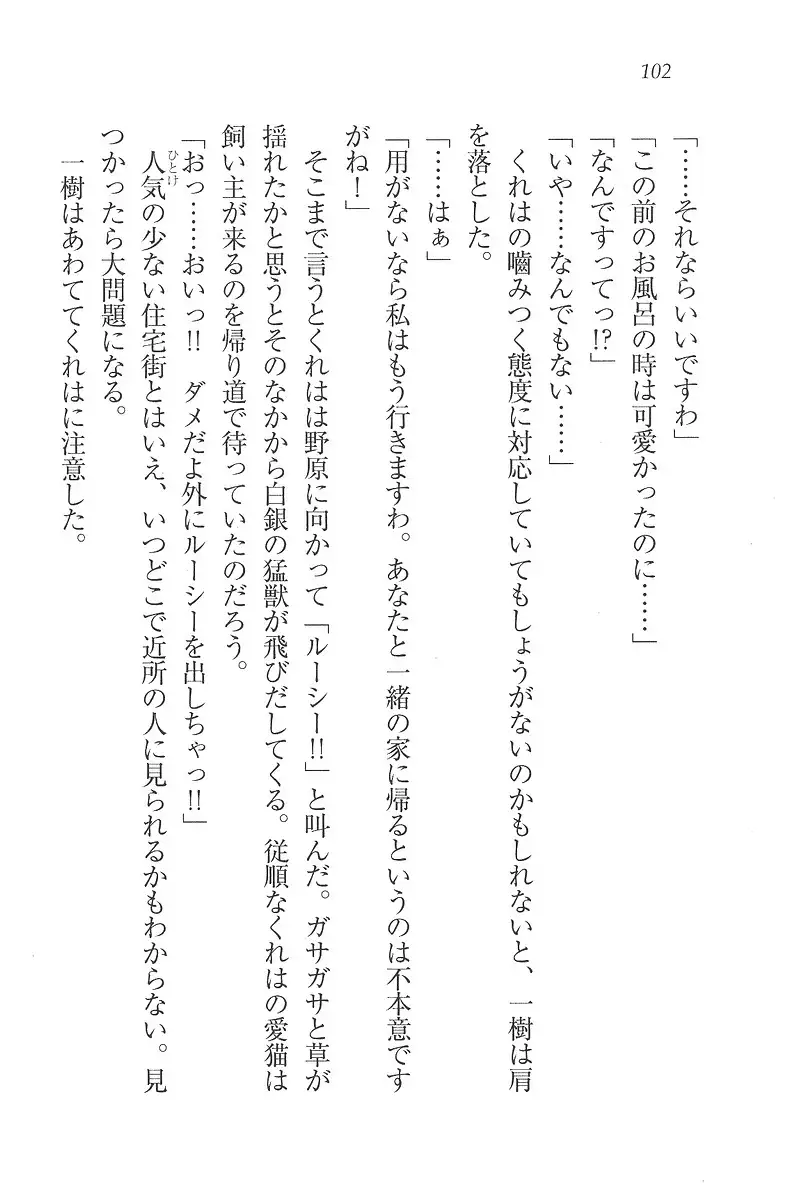 102
「……それならいいですわ」
「この前のお風呂の時は可愛かったのに……」
「なんですってっ!?」
「いや……なんでもない……」
　くれはの嚙みつく態度に対応していてもしょうがないのかもしれないと、一樹は肩
を落とした。
「……はぁ」
「用がないなら私はもう行きますわ。あなたと一緒の家に帰るというのは不本意です
がね！」
　そこまで言うとくれはは野原に向かって「ルーシー!!」と叫んだ。ガサガサと草が
揺れたかと思うとそのなかから白銀の猛獣が飛びだしてくる。従順なくれはの愛猫は
飼い主が来るのを帰り道で待っていたのだろう。
「おっ……おいっ!!　ダメだよ外にルーシーを出しちゃっ!!」
　人気ひとけの少ない住宅街とはいえ、いつどこで近所の人に見られるかもわからない。見
つかったら大問題になる。
　一樹はあわててくれはに注意した。